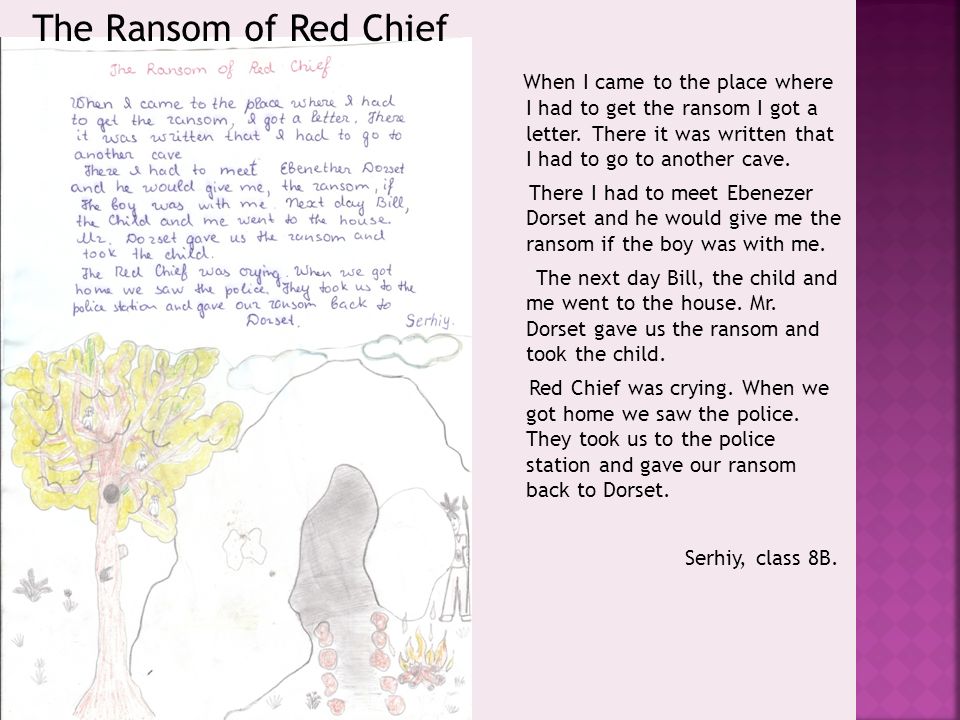 The Ransom of Red Chief
The Ransom of Red Chief
When I came to the place where I had
to get the ransom, I got a letter. There
it was written that I had to go to
another cave
There I had to meet Ebenether Dorset
and he would give me, the ransom, if
The boy was with me. Next day Bill,
the Child and me went to the house.
Mr. Dorset gave us the ransom and
took the child.
The Red Chief was crying. When we got
home we saw the police. They took us to the
police station and gave our ransom back to
Dorset. Serhiy.
When I came to the place where
I had to get the ransom I got a
letter. There it was written that
I had to go to another cave.
There I had to meet Ebenezer
Dorset and he would give me the
ransom if the boy was with me.
The next day Bill, the child and
me went to the house. Mr.
Dorset gave us the ransom and
took the child.
Red Chief was crying. When we
got home we saw the police.
They took us to the police
station and gave our ransom
back to Dorset.
Serhiy, class 8B.